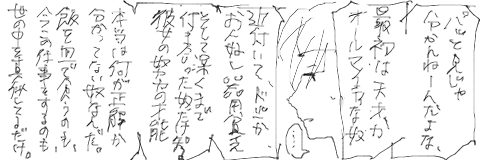 パッと見じゃ
分かんねーんだよな、
最初は天才か
オールマイティな奴
近付いて、ドッか
おんなし器用貧乏
そして深くまで
付き合った奴だけ知る
彼女の努力の才能
本当は何が正解か
分かってない奴なだけ。
飯を皿で食うのも、
今この仕事をするのも、
世の中を真似してるだけ。
…